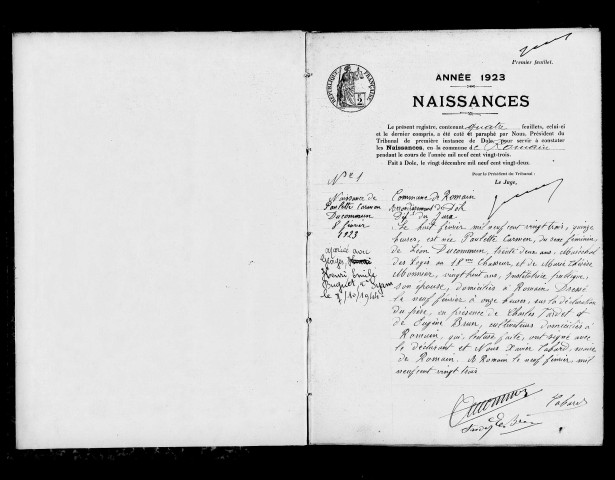 Premier feuillet.
RÉPUBLIQUE FRANÇAISE
ANNÉE 1923
NAISSANCES
Le présent registre, contenant quatre feuillets, celui-ci
et le dernier compris, a été coté et paraphé par Nous, Président du
Tribunal de première instance de Dole, pour servir à constater
les Naissances, en la commune de Romain
pendant le cours de l'année mil neuf cent vingt-trois.
Fait à Dole, le vingt décembre mil neuf cent vingt-deux.
Pour le Président du Tribunal :
Le Juge,
N° 1
Naissance de
Paulette Carmen
Ducommun
8 février
1923
Commune de Romain
Arrondissement de Dole
Dép. du Jura
Le huit février mil neuf cent vingt trois, quinze
heures, est née Paulette Carmen, du sexe féminin
de Léon Ducommun, trente deux ans, Maréchal
des Logis au 18me Chasseur, et de Marie
Monneur, vingt huit ans, Institutrice publique,
son épouse, domiciliés à Romain Dressé
le neuf février à onze heures, sur la déclaration
du père, en présence de Charles Tardet et
de Eugène Brun, cultivateurs domiciliés à
Romain, qui, lecture faite, ont signé avec
le déclarant et Nous Xavier Tabard, maire
de Romain. A Romain le neuf février mil
neuf cent vingt trois
Henri Emile
le 7/10/1944
Ducommun
Tabard